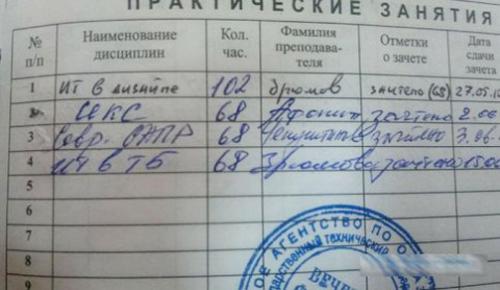 ПРАКТИЧЕСКИЕ ЗАНЯТИЯ
№ п/п Наименование дисциплин Кол. час. Фамилия преподава-теля Отметки о зачете Дата сдачи зачета
1 ИТ в дизайне 102 зачтено (68) 27.05.
2 СЕКС 68 Афонин зачтено 2.06
3 Совр. САПР 68 зачтено 3.06
4 ИТ в ТБ 68 зачтено 15.06
5
6
7
8
9
АГЕНТСТВО ПО О
дарственный технический
ВЕЧЕ